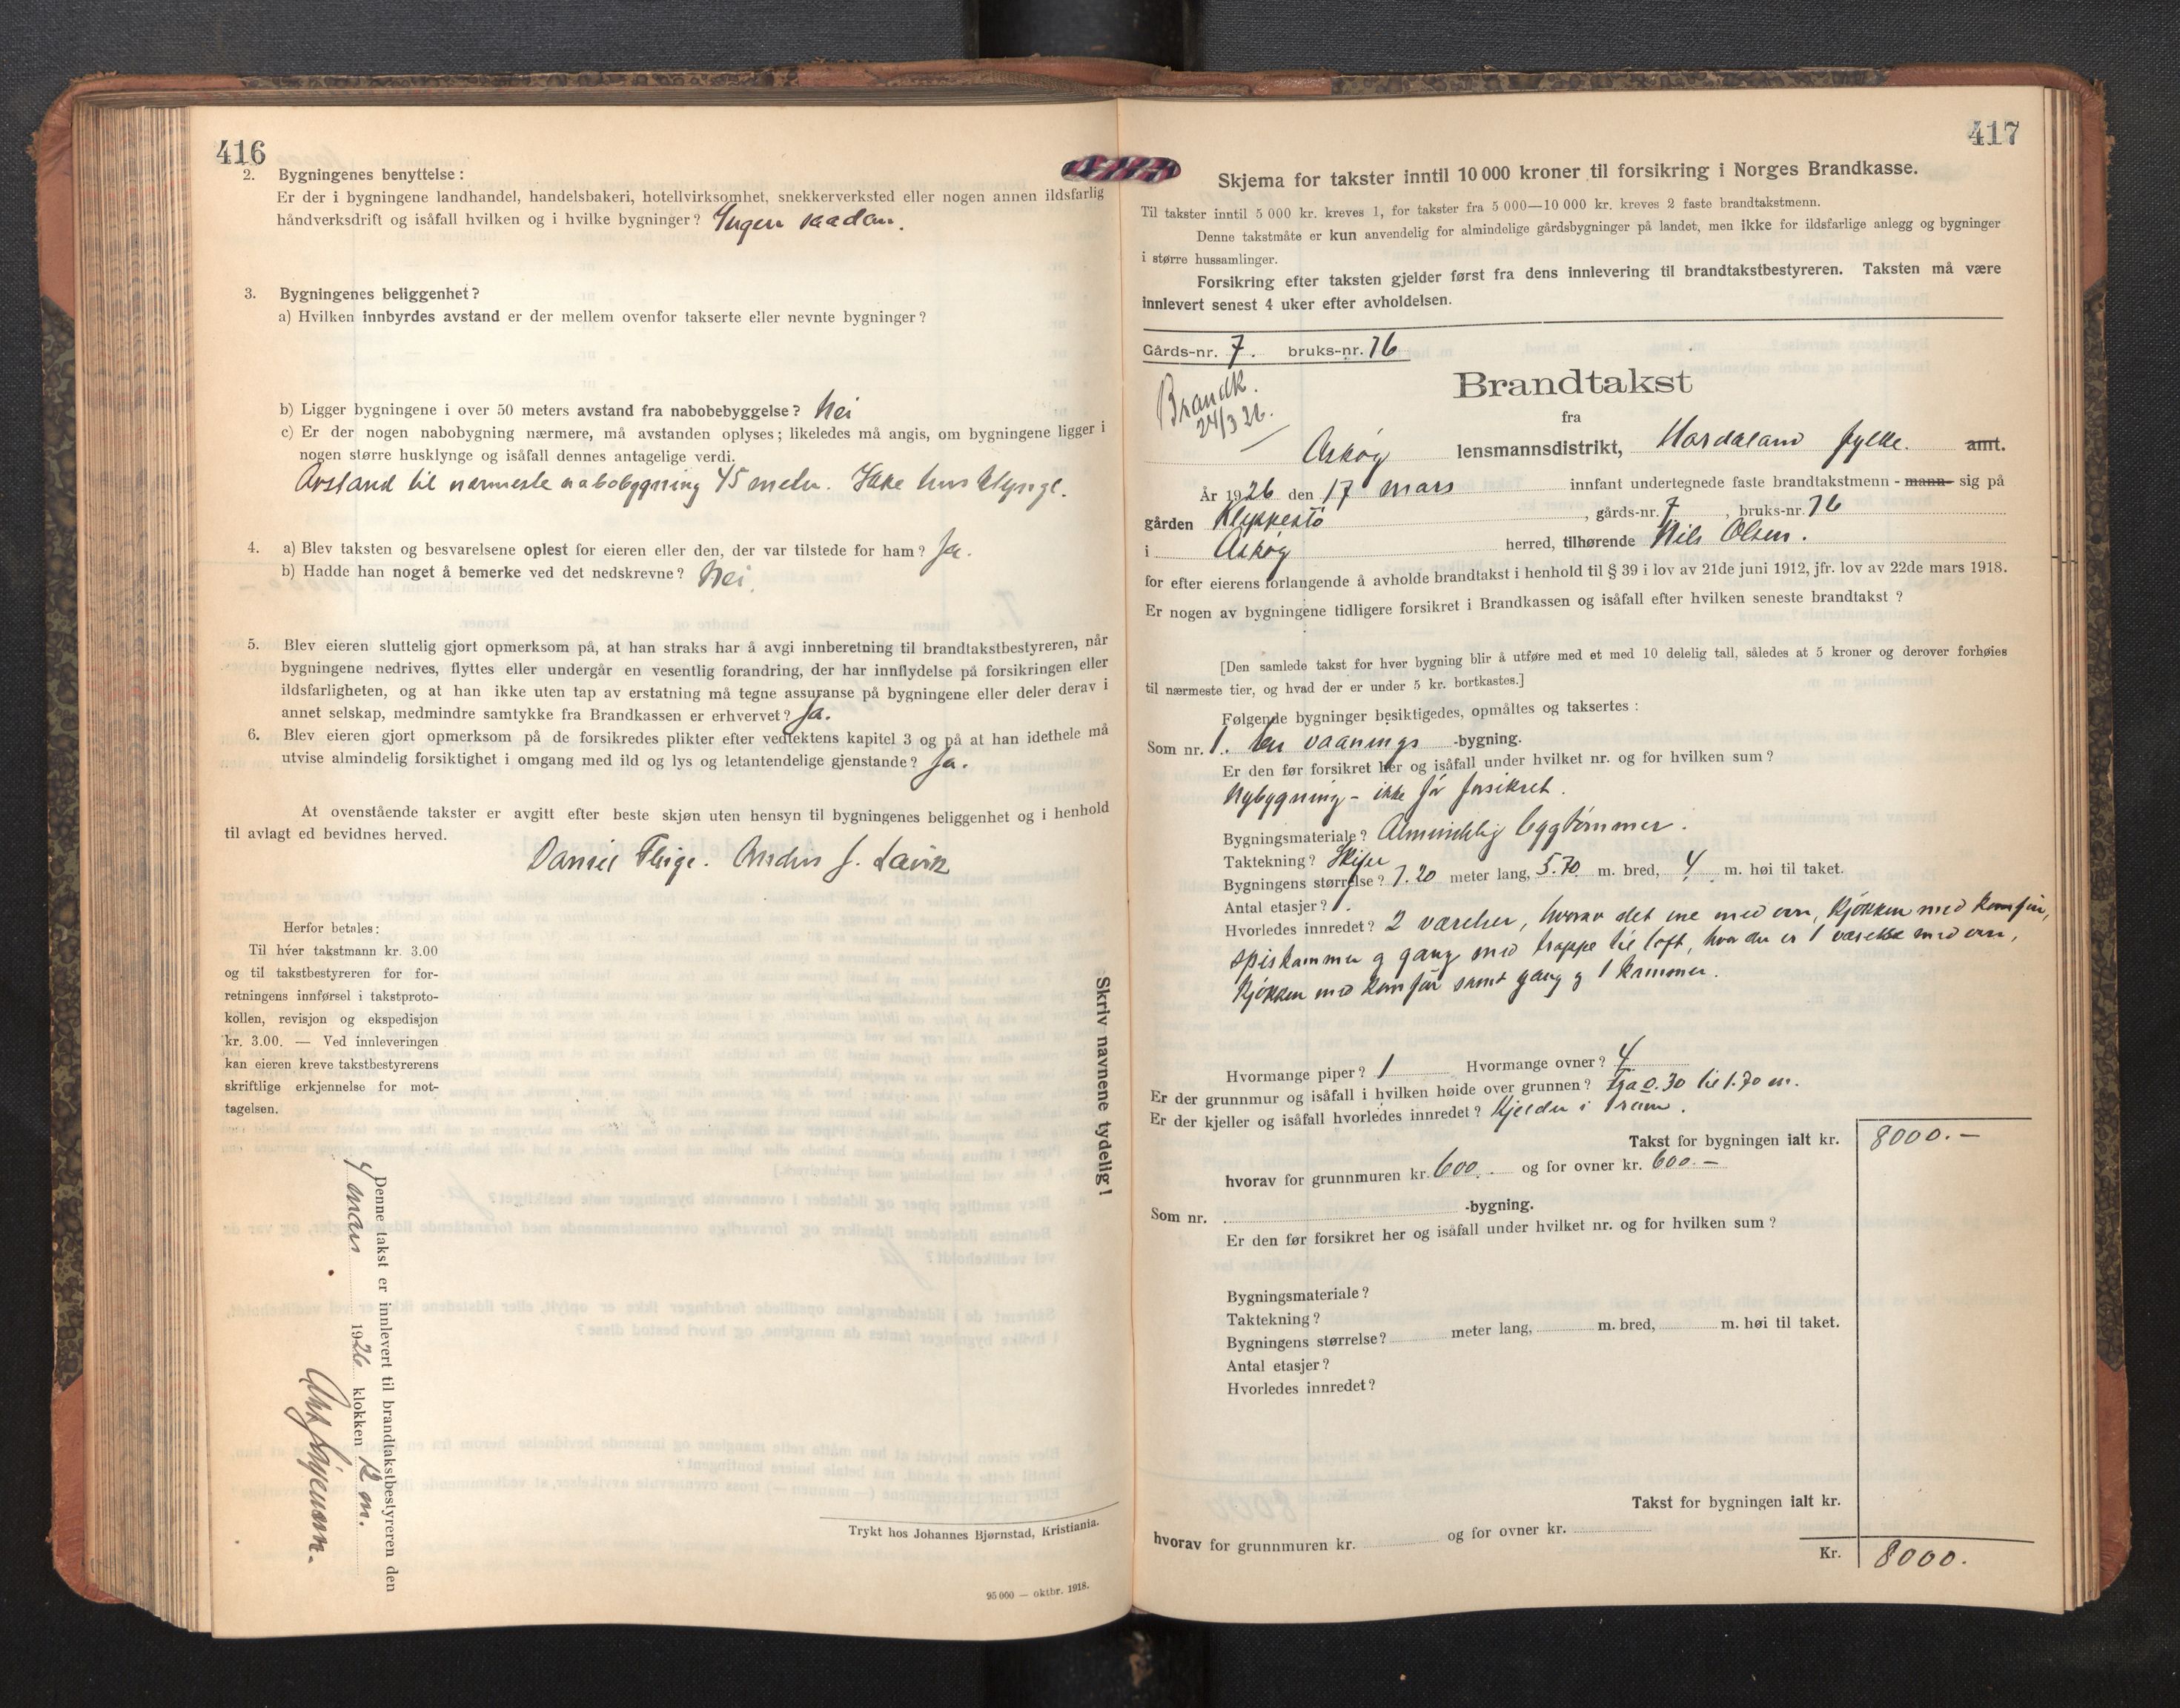 416
2. Bygningenes benyttelse:
Er der i bygningene landhandel, handelsbakeri, hotellvirksomhet, snekkerverksted eller nogen annen ildsfarlig
håndverksdrift og isåfall hvilken og i hvilke bygninger? Ingen saadan.
3. Bygningenes beliggenhet?
a) Hvilken innbyrdes avstand er der mellem ovenfor takserte eller nevnte bygninger?
b) Ligger bygningene i over 50 meters avstand fra nabobebyggelse? Nei
c) Er der nogen nabobygning nærmere, må avstanden oplyses; likeledes må angis, om bygningene ligger i
nogen større husklynge og isåfall dennes antagelige verdi.
Avstand til nærmeste nabobygning 45 meter. Ikke husklynge.
4. a) Blev taksten og besvarelsene oplest for eieren eller den, der var tilstede for ham? Ja.
b) Hadde han noget å bemerke ved det nedskrevne? Nei.
5. Blev eieren sluttelig gjort opmerksom på, at han straks har å avgi innberetning til brandtakstbestyreren, når
bygningene nedrives, flyttes eller undergår en vesentlig forandring, der har innflydelse på forsikringen eller
ildsfarligheten, og at han ikke uten tap av erstatning må tegne assuranse på bygningene eller deler derav i
annet selskap, medmindre samtykke fra Brandkassen er erhvervet? Ja.
6. Blev eieren gjort opmerksom på de forsikredes plikter efter vedtektens kapitel 3 og på at han idethele må
utvise almindelig forsiktighet i omgang med ild og lys og letantendelige gjenstande? Ja.
At ovenstående takster er avgitt efter beste skjøn uten hensyn til bygningenes beliggenhet og i henhold
til avlagt ed bevidnes herved.
Daniel Anders J. Lavik
Herfor betales:
Til hver takstmann kr. 3.00
og til takstbestyreren for for-
retningens innførsel i takstproto-
kollen, revisjon og ekspedisjon
kr. 3.00. — Ved innleveringen
kan eieren kreve takstbestyrerens
skriftlige erkjennelse for mot-
tagelsen.
Skriv navnene tydelig!
Denne takst er innlevert til brandtakstbestyreren den
mars 1926 klokken 12 m.
Trykt hos Johannes Bjørnstad, Kristiania.
95 000 — oktbr. 1918.
417
Skjema for takster inntil 10 000 kroner til forsikring i Norges Brandkasse.
Til takster inntil 5 000 kr. kreves 1, for takster fra 5 000—10 000 kr. kreves 2 faste brandtakstmenn.
Denne takstmåte er kun anvendelig for almindelige gårdsbygninger på landet, men ikke for ildsfarlige anlegg og bygninger
i større hussamlinger.
Forsikring efter taksten gjelder først fra dens innlevering til brandtakstbestyreren. Taksten må være
innlevert senest 4 uker efter avholdelsen.
Gårds-nr. 7. bruks-nr. 76
Brandk.
24/3 26.
Brandtakst
fra
Askøy lensmannsdistrikt, Hordaland fylke. amt.
År 1926 den 17 mars innfant undertegnede faste brandtakstmenn - mann- sig på
gården Kleppestø, gårds-nr. 7, bruks-nr. 76
i Askøy herred, tilhørende Nils Olsen.
for efter eierens forlangende å avholde brandtakst i henhold til § 39 i lov av 21de juni 1912, jfr. lov av 22de mars 1918.
Er nogen av bygningene tidligere forsikret i Brandkassen og isåfall efter hvilken seneste brandtakst?
[Den samlede takst for hver bygning blir å utføre med et med 10 delelig tall, således at 5 kroner og derover forhøies
til nærmeste tier, og hvad der er under 5 kr. bortkastes.]
Følgende bygninger besiktigedes, opmåltes og taksertes:
Som nr. 1. en vaanings -bygning.
Er den før forsikret her og isåfall under hvilket nr. og for hvilken sum?
Nybygning - ikke før forsikret.
Bygningsmateriale? Almindelig bygtømmer.
Taktekning? Skifer
Bygningens størrelse? 7.20 meter lang, 5.70 m. bred, 4 m. høi til taket.
Antal etasjer? 1.
Hvorledes innredet? 2 værelser, hvorav det ene med ovn, kjøkken med komfür,
spiskammer og gang med trappe til loft, hvor der er 1 værelse med ovn,
kjøkken med komfür samt gang og 1 kammer.
Hvormange piper? 1 Hvormange ovner? 4
Er der grunnmur og isåfall i hvilken høide over grunnen? Fra 0.30 til 1.70 m.
Er der kjeller og isåfall hvorledes innredet? Kjelder i 1 rum.
Takst for bygningen ialt kr. 8000.—
hvorav for grunnmuren kr. 600. og for ovner kr. 600.—
Som nr. -bygning.
Er den før forsikret her og isåfall under hvilket nr. og for hvilken sum?
Bygningsmateriale?
Taktekning?
Bygningens størrelse? meter lang, m. bred, m. høi til taket.
Antal etasjer?
Hvorledes innredet?
Takst for bygningen ialt kr.
hvorav for grunnmuren kr. og for ovner kr.
Kr. 8000.